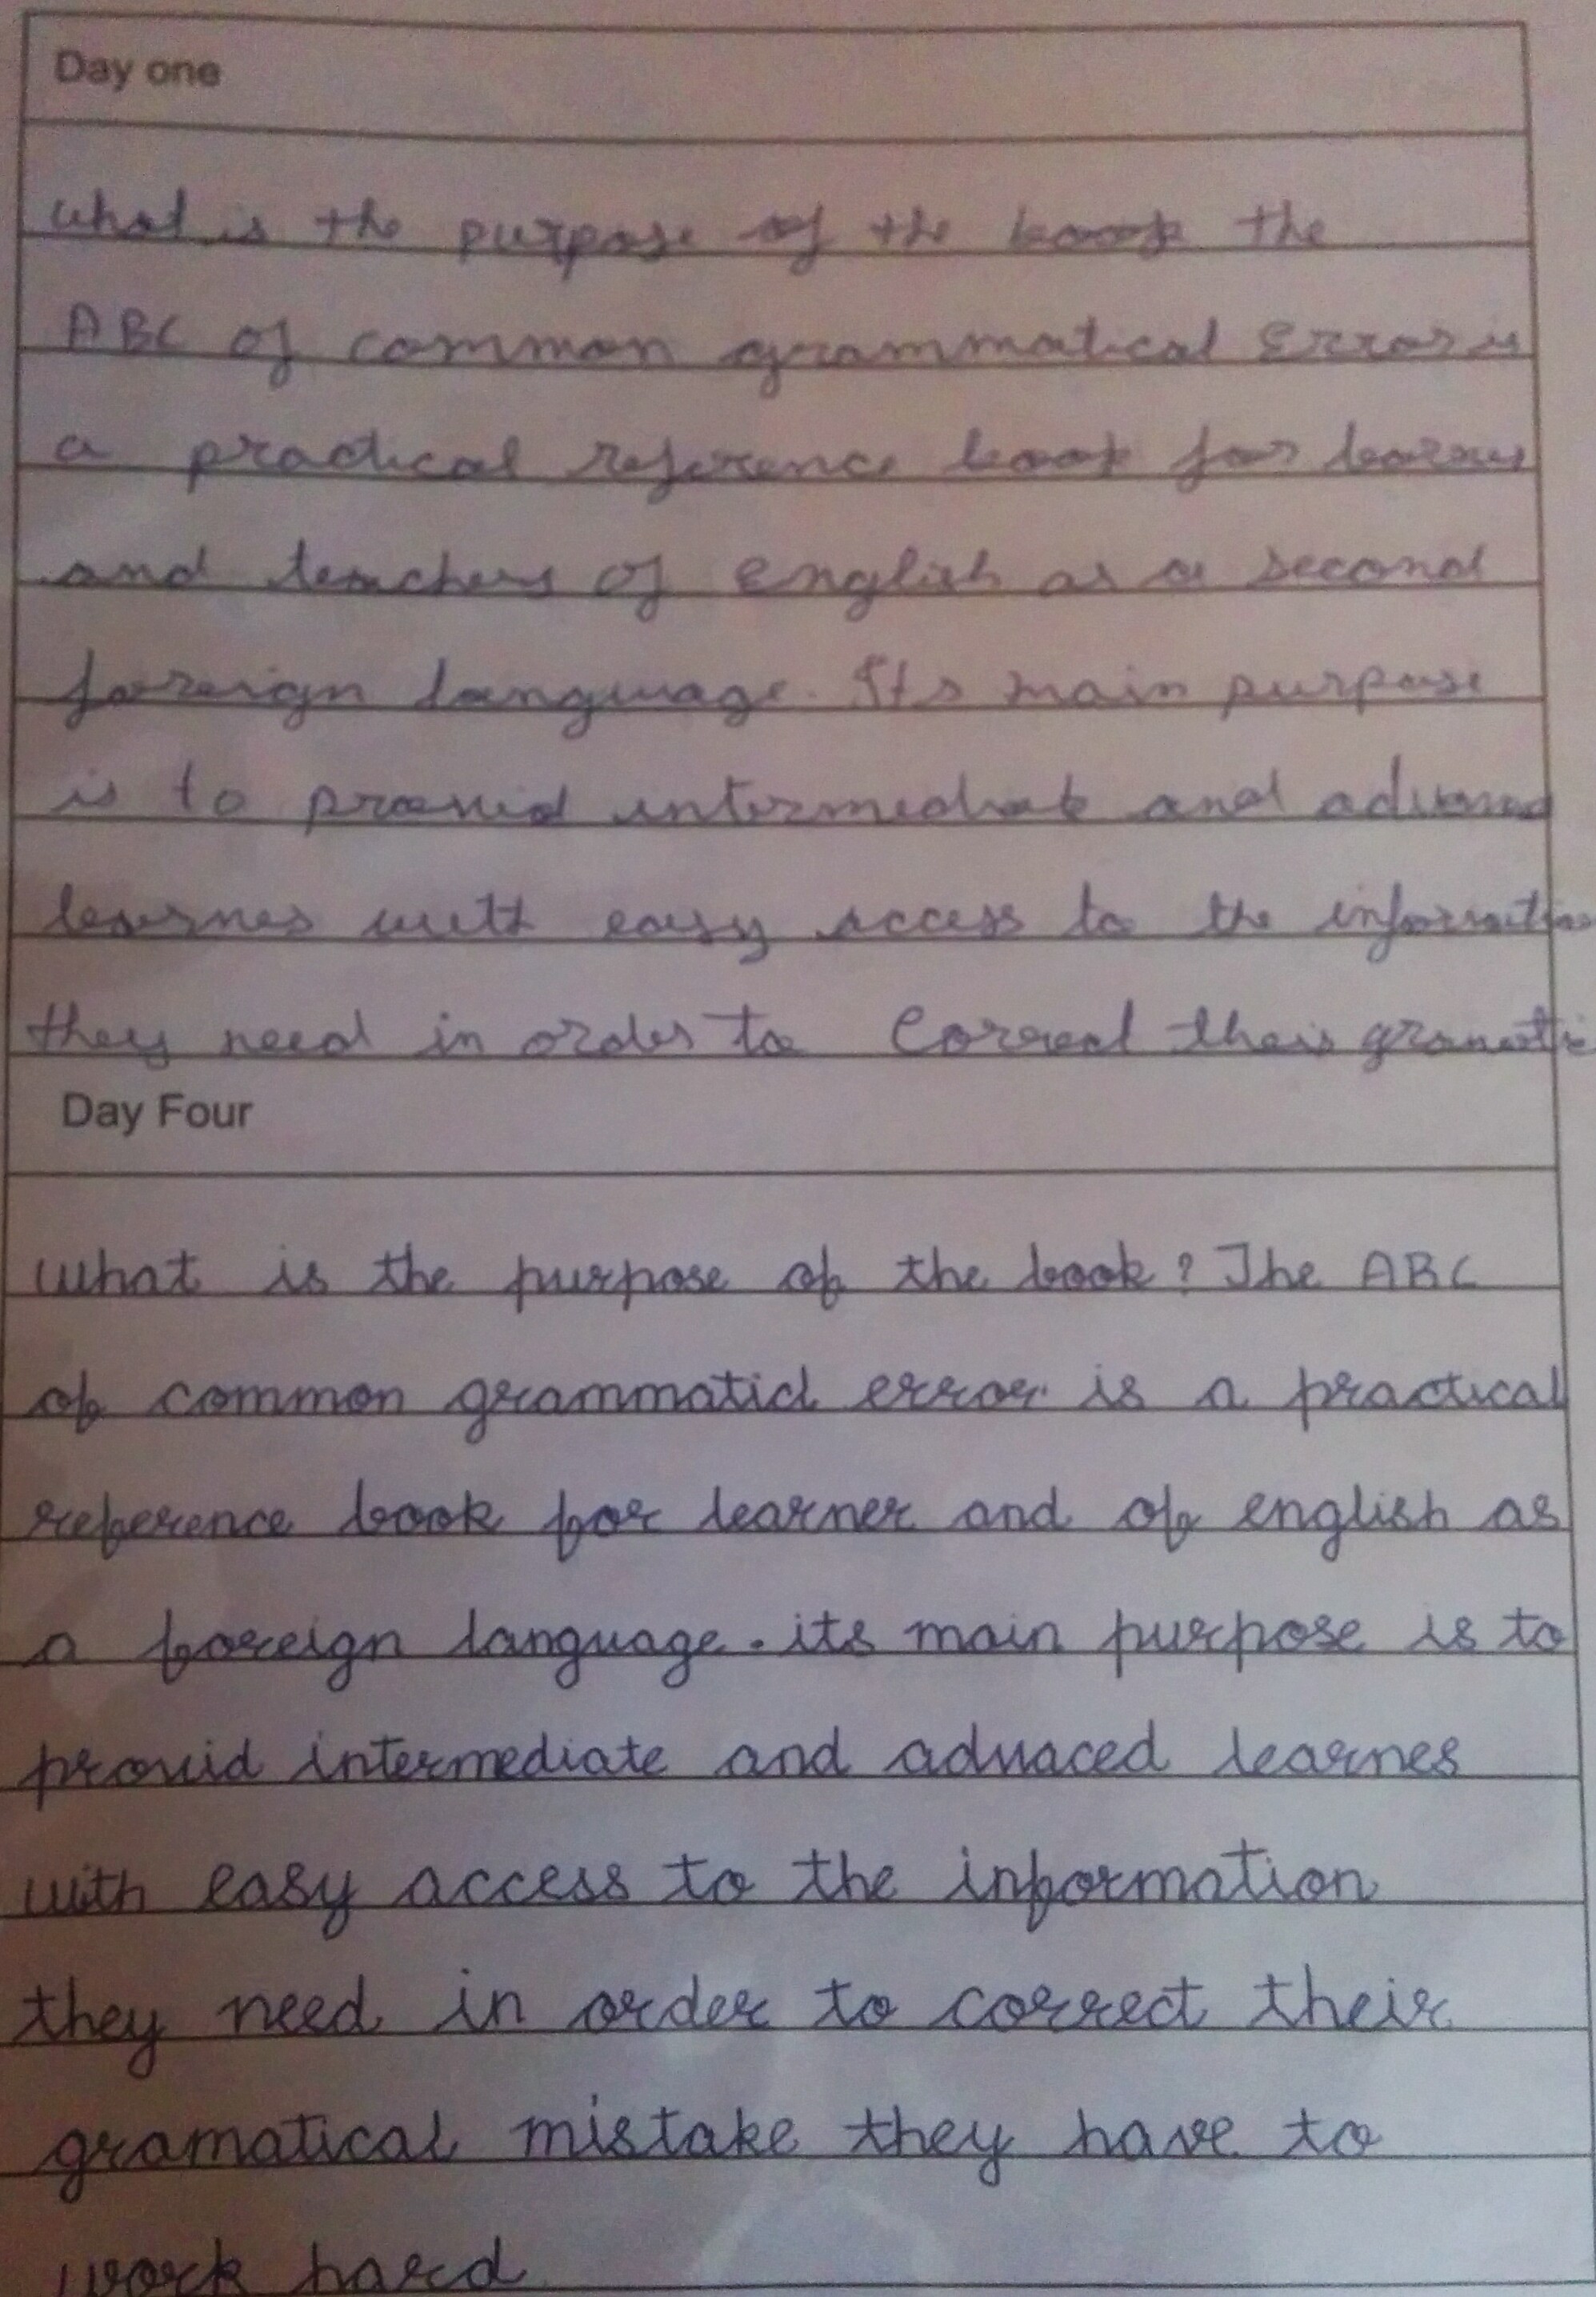 Day one
what is the purpose of the book the
ABC of common grammatical Error is
a practical reference book for
and teachers of English as a second
foreign language. Its main purpose
is to provid intermediate and
learnes with easy access to the
they need in order to Correct their
Day Four
What is the purpose of the book? The ABC
of common grammaticl error is a practical
reference book for learner and of english as
a foreign language. its main purpose is to
provid intermediate and advaced learnes
with easy access to the information
they need in order to correct their
gramatical mistake they have to
work hard